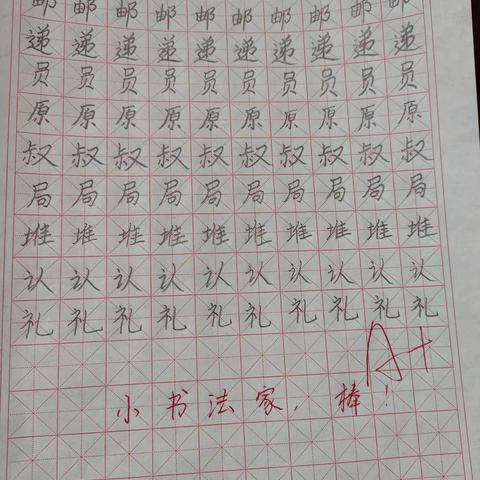 邮邮邮邮邮邮邮邮邮邮
递递递递递递递递递递
员员员员员员员员员员
原原原原原原原原原原
叔叔叔叔叔叔叔叔叔叔
局局局局局局局局局局
堆堆堆堆堆堆堆堆堆堆
认认认认认认认认认认
礼礼礼礼礼礼礼礼礼礼
A+
小书法家,棒!